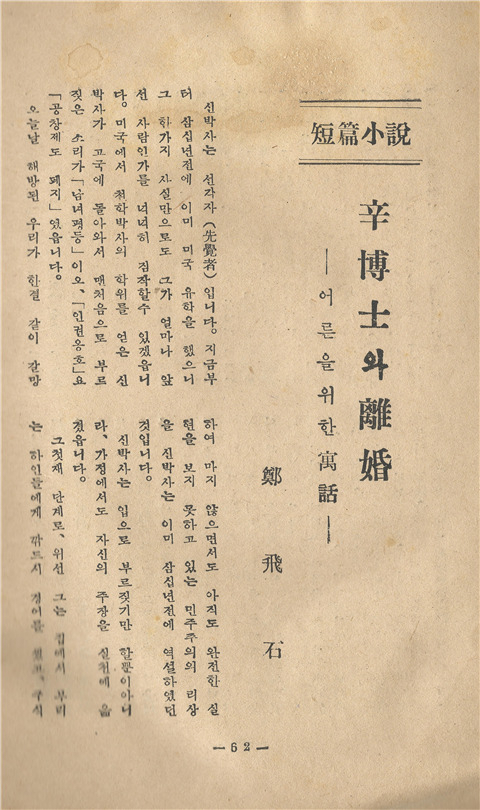 短篇小說
辛博士와離婚
—어른을위한寓話—
鄭飛石
신박사는 선각자(先覺者)입니다. 지금부
터 삼십년전에 이미 미국 유학을 했으니
그 한가지 사실만으로도 그가 얼마나 앞
선 사람인가를 넉넉히 짐작할수 있겠읍니
다. 미국에서 철학박사의 학위를 얻은 신
박사가 고국에 돌아와서 맨처음으로 부르
짖은 소리가 「남녀평등」이오、「인권옹호」요
「공창제도 폐지」였읍니다.
오늘날 해방된 우리가 한결 같이 갈망
하여 마지 않으면서도 아직도 완전한 실
현을 보지 못하고 있는 민주주의의 리상
을 신박사는 이미 삼십년전에 역설하였던
것입니다.
신박사는 입으로 부르짖기만 할뿐이아니
라、가정에서도 자신의 주장을 실천에 옮
겼읍니다.
그첫재 단계로、위선 그는 집에서 부리
는 하인들에게 깎드시 경어를
—62—